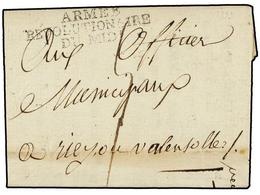 ARMÉE
REVOLUTIONAIRE
DU MIDI
Aux Officier
Municipaux
a riez ou valensolles /.